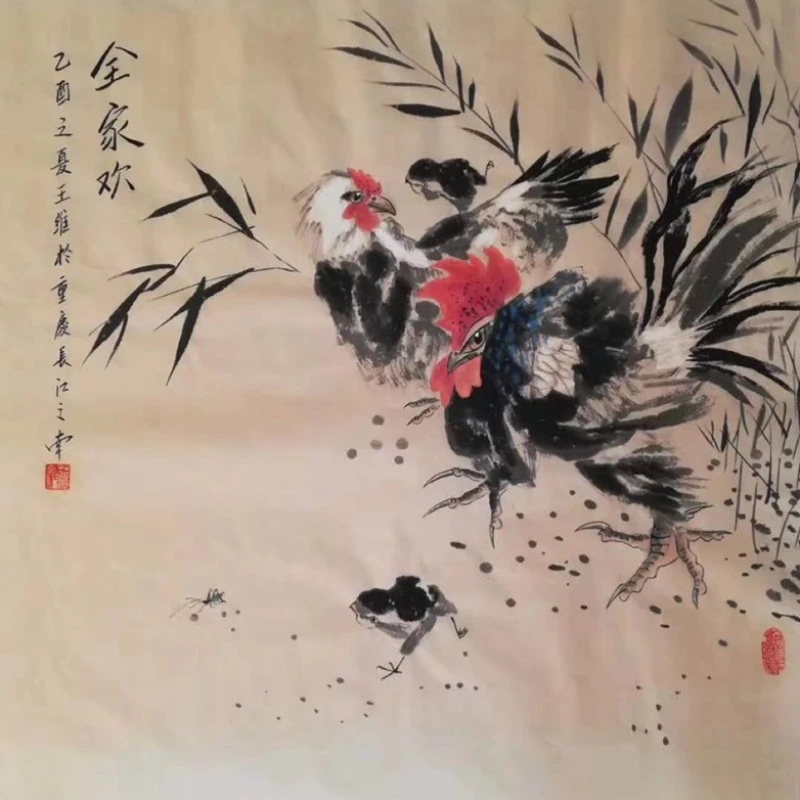 全家欢
乙酉之夏王维於重庆長江之南